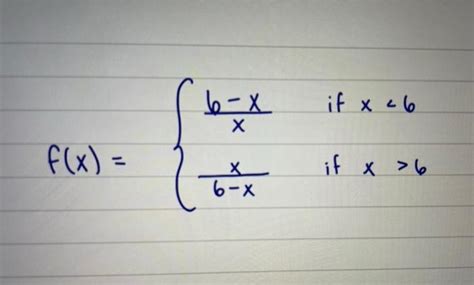 f(x) = { (6-x)/x if x < 6
x/(6-x) if x > 6